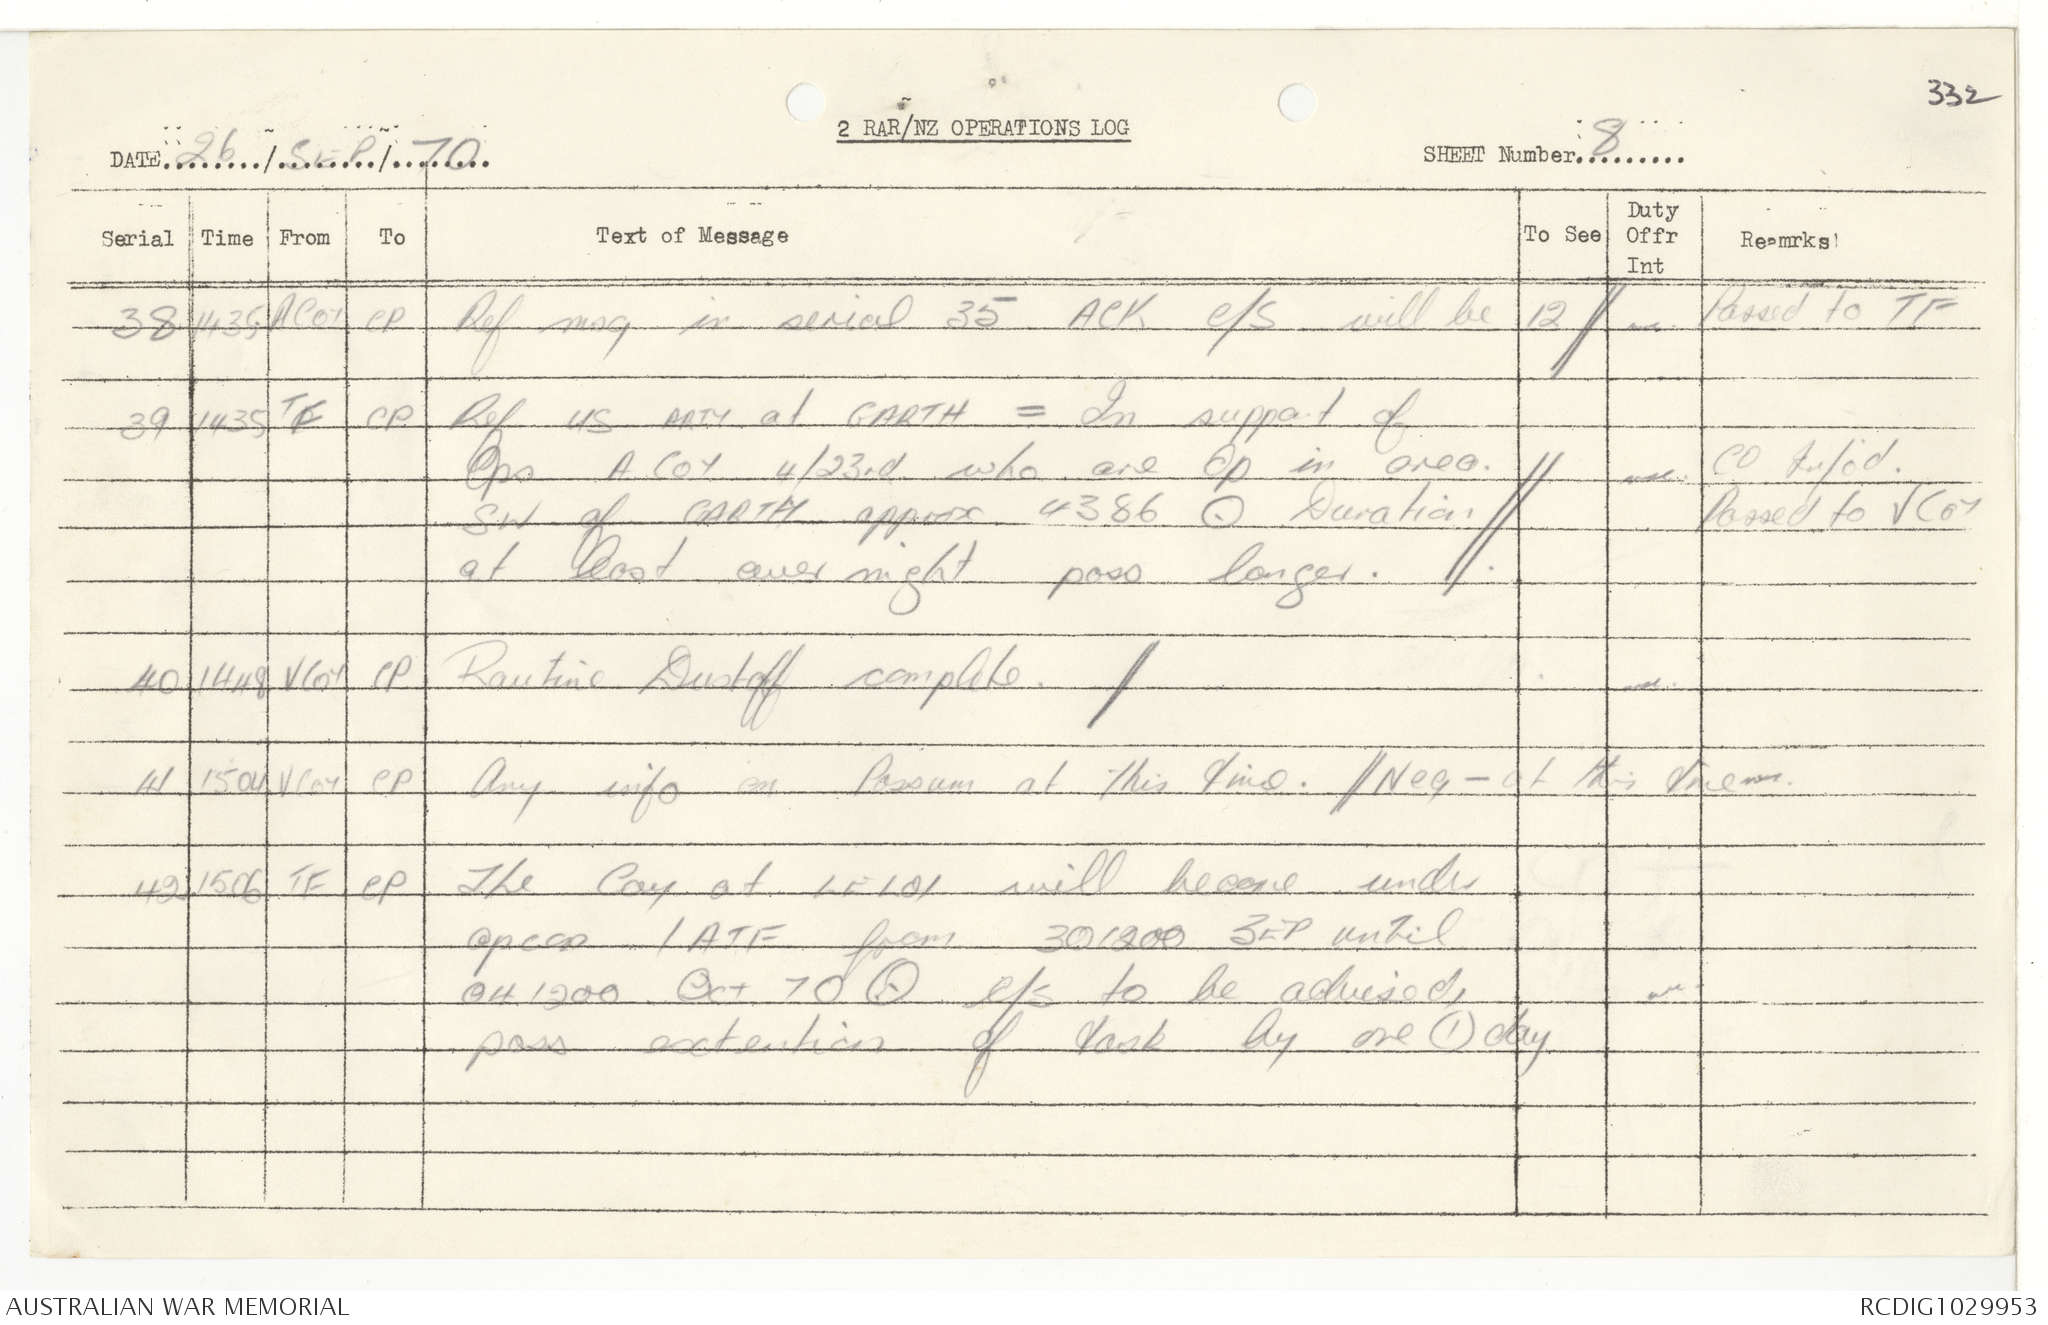 332
2 RAR/NZ OPERATIONS LOG
DATE 26/SEP/70
SHEET Number 8
Serial Time From To Text of Message To See Duty Offr Int Remrks
38 1435 A Coy CP Ref msg in serial 35 ACK C/S will be 12 // Passed to TF
39 1435 TF CP Ref US ARTY at GARTH = In support of
Ops A Coy 4/23rd who are Op in area. CO Infod.
SW of GARTH approx 4386 ⊙ Duration Passed to V Coy
at least over night poss longer. //.
40 1448 V Coy CP Routine Dustoff complete. /
41 1504 V Coy CP Any info on Possum at this time. // Neg - at this time
42 1506 TF CP The Coy at LE LOI will become under
opcon 1 ATF from 301200 SEP until
041200 Oct 70 ⊙ C/S to be advised,
poss extention of task by one (1) day
AUSTRALIAN WAR MEMORIAL
RCDIG1029953